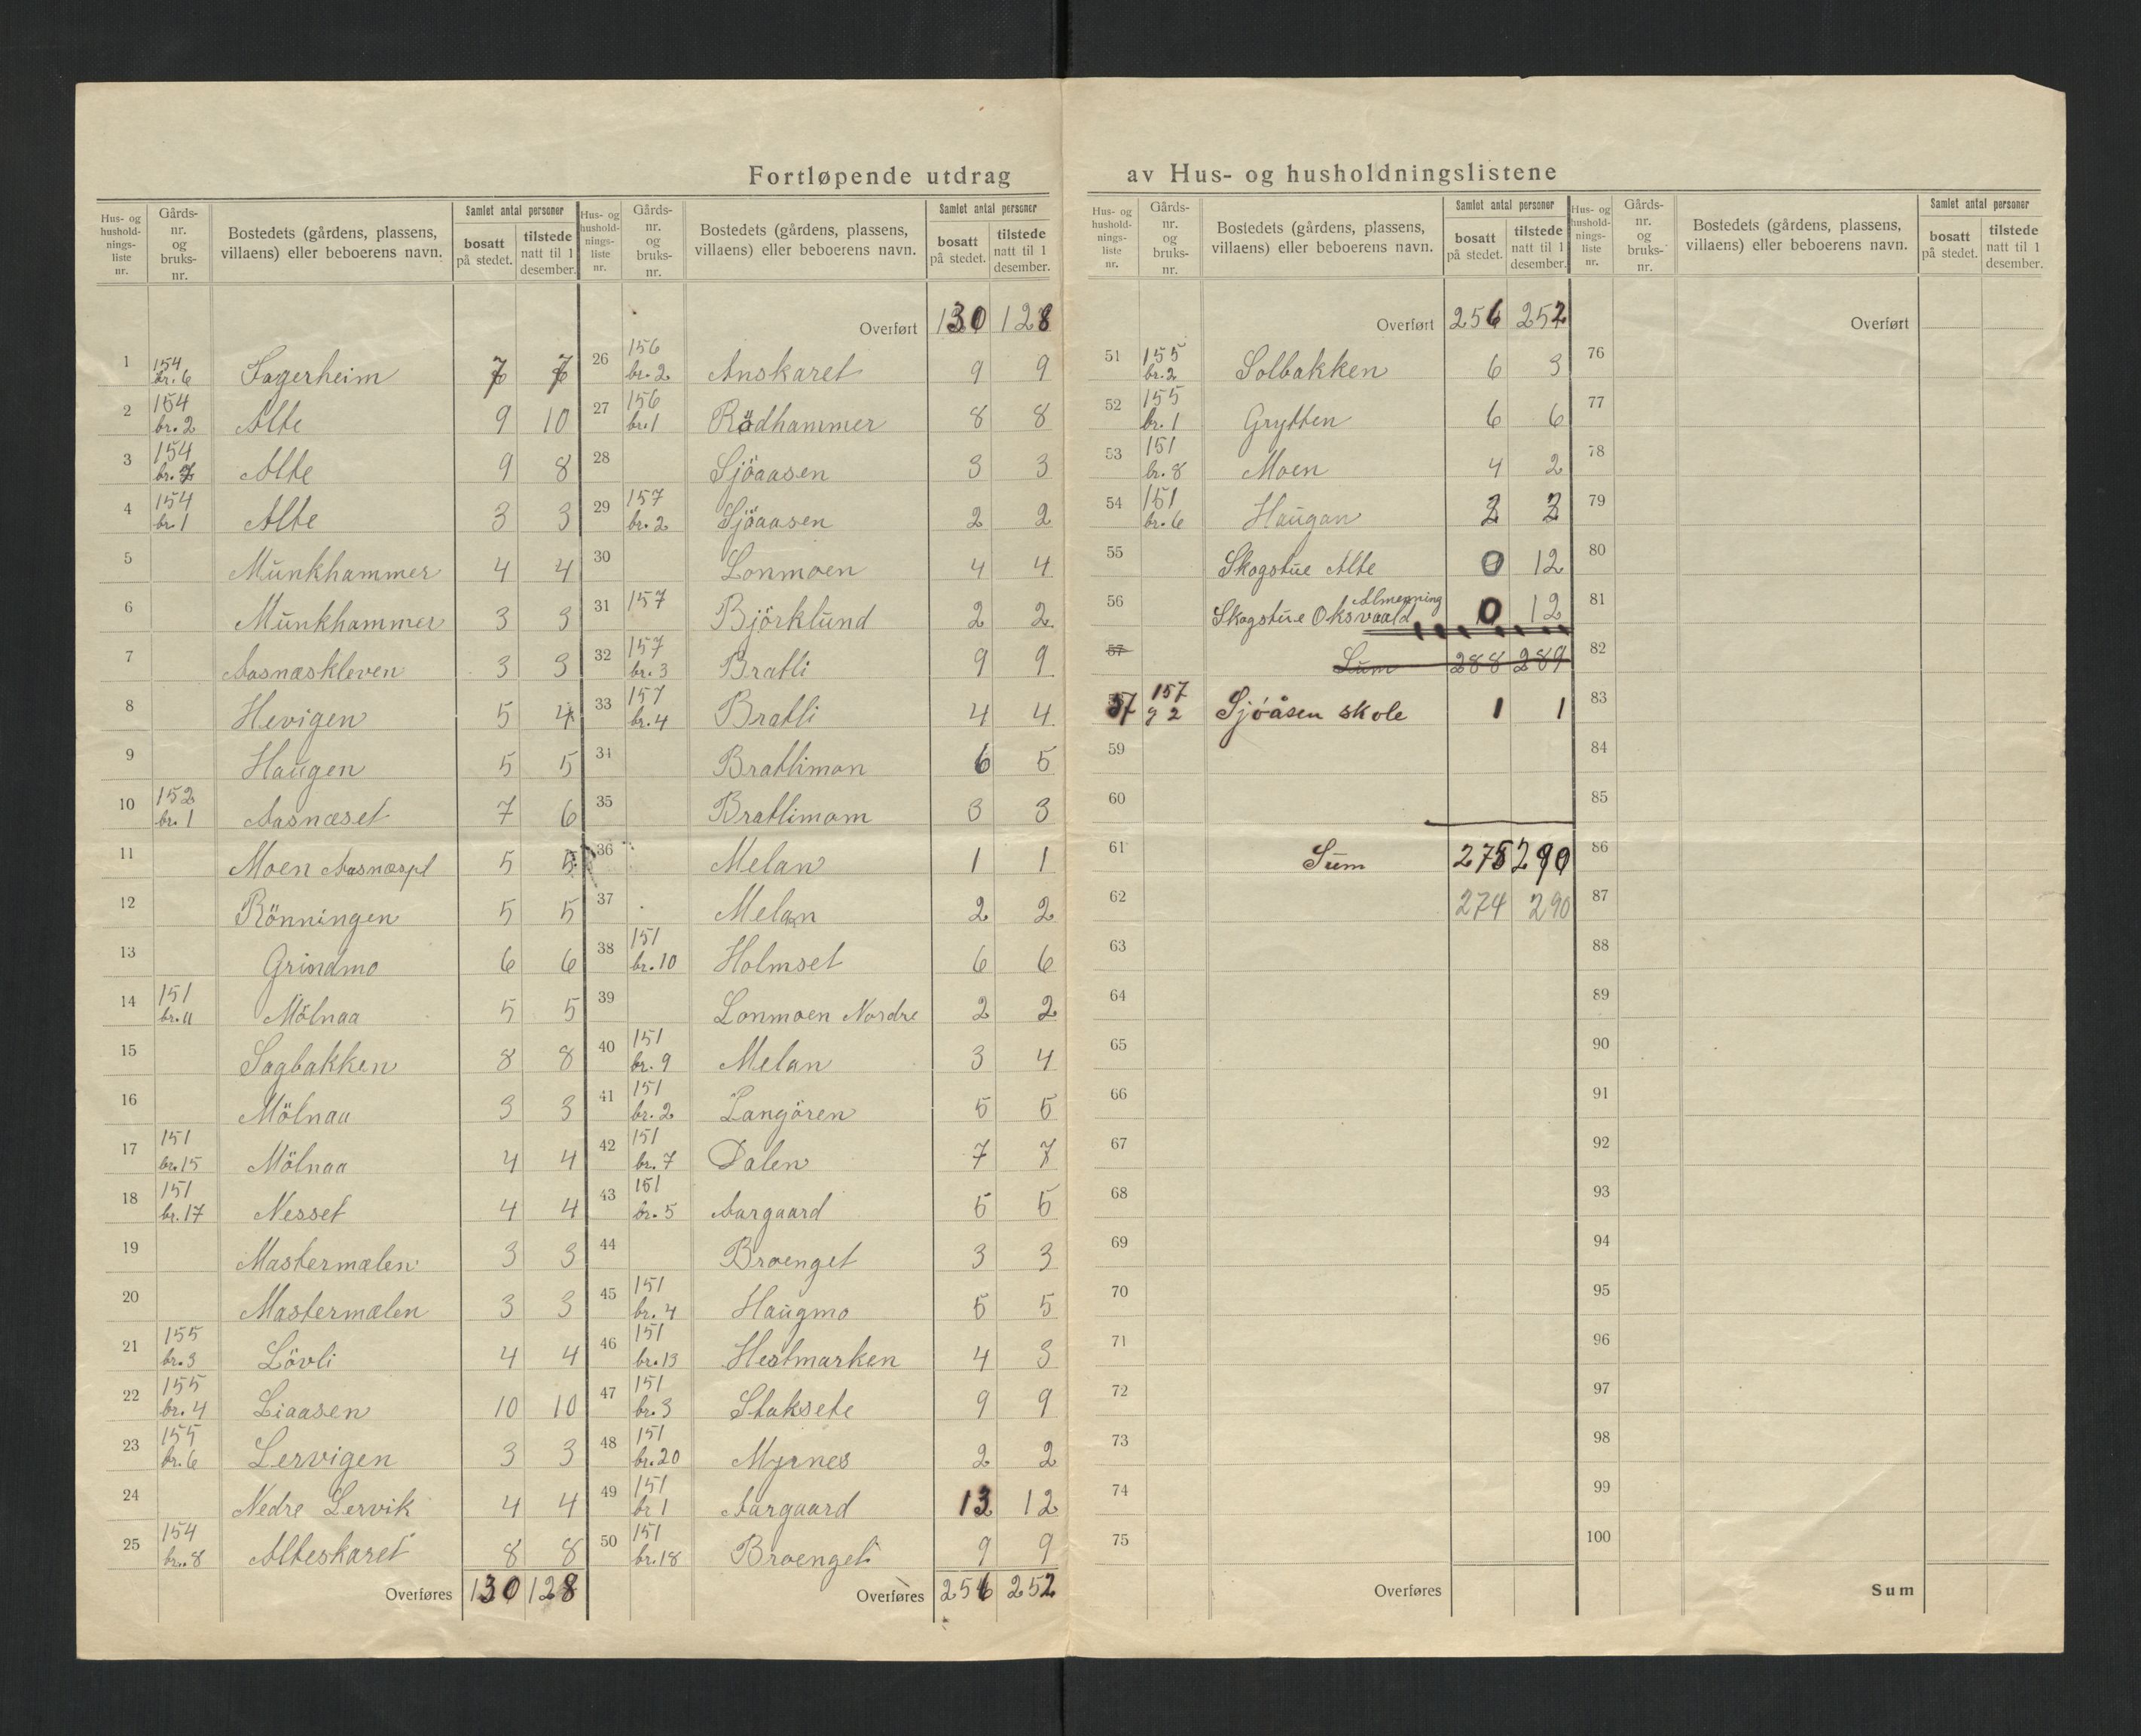 Fortløpende utdrag av Hus- og husholdningslistene
Hus- og hushold-nings-liste nr. Gårds-nr. og bruks-nr. Bostedets (gårdens, plassens, villaens) eller beboerens navn. Samlet antal personer bosatt på stedet. tilstede natt til 1 desember.
1 154 br. 6 Fagerheim 7 7
2 154 br. 2 Alte 9 10
3 154 br. 7 Alte 9 8
4 154 br. 1 Alte 3 3
5 Munkhammer 4 4
6 Munkhammer 3 3
7 Aasnæskleven 3 3
8 Hevigen 5 4
9 Haugen 5 5
10 152 br. 1 Aasnæset 7 6
11 Moen Aasnæspl 5 5
12 Rönningen 5 5
13 Grindmo 6 6
14 151 br. 11 Mölnaa 5 5
15 Sagbakken 8 8
16 Mölnaa 3 3
17 151 br. 15 Mölnaa 4 4
18 151 br. 17 Nesset 4 4
19 Mastermælen 3 3
20 Mastermælen 3 3
21 155 br. 3 Lövli 4 4
22 155 br. 4 Liaasen 10 10
23 155 br. 6 Lervigen 3 3
24 Nedre Lervik 4 4
25 154 br. 8 Alteskaret 8 8
Overføres 130 128
Hus- og hushold-nings-liste nr. Gårds-nr. og bruks-nr. Bostedets (gårdens, plassens, villaens) eller beboerens navn. Samlet antal personer bosatt på stedet. tilstede natt til 1 desember.
Overført 130 128
26 156 br. 2 Anskaret 9 9
27 156 br. 1 Rödhammer 8 8
28 Sjöaasen 3 3
29 157 br. 2 Sjöaasen 2 2
30 Lonmoen 4 4
31 157 Björklund 2 2
32 157 br. 3 Bratli 9 9
33 157 br. 4 Bratli 4 4
34 Bratlimon 6 5
35 Bratlimom 3 3
36 Melan 1 1
37 Melan 2 2
38 151 br. 10 Holmset 6 6
39 Lonmoen Nordre 2 2
40 151 br. 9 Melan 3 4
41 151 br. 2 Langören 5 5
42 151 br. 7 Dalen 7 7
43 151 br. 5 Aargaard 5 5
44 Broenget 3 3
45 151 br. 4 Haugmo 5 5
46 151 br. 13 Hestmarken 4 3
47 151 br. 3 Staksete 9 9
48 151 br. 20 Myrnes 2 2
49 151 br 1 Aargaard 13 12
50 151 br. 18 Broenget 9 9
Overføres 256 252
Hus- og hushold-nings-liste nr. Gårds-nr. og bruks-nr. Bostedets (gårdens, plassens, villaens) eller beboerens navn. Samlet antal personer bosatt på stedet. tilstede natt til 1 desember.
Overført 256 252
51 155 br. 2 Solbakken 6 3
52 155 br. 1 Grytten 6 6
53 151 br. 8 Moen 4 2
54 151 br. 6 Haugan 2 2
55 Skogstue Alte 0 12
56 Skogstue Oksvaald Almenning 0 12
57 Sum 288 289
57 157 g 2 Sjöåsen skole 1 1
59
60
61 Sum 275 290
62 274 290
63
64
65
66
67
68
69
70
71
72
73
74
75
Overføres
Hus- og hushold-nings-liste nr. Gårds-nr. og bruks-nr. Bostedets (gårdens, plassens, villaens) eller beboerens navn. Samlet antal personer bosatt på stedet. tilstede natt til 1 desember.
Overført
76
77
78
79
80
81
82
83
84
85
86
87
88
89
90
91
92
93
94
95
96
97
98
99
100
Sum